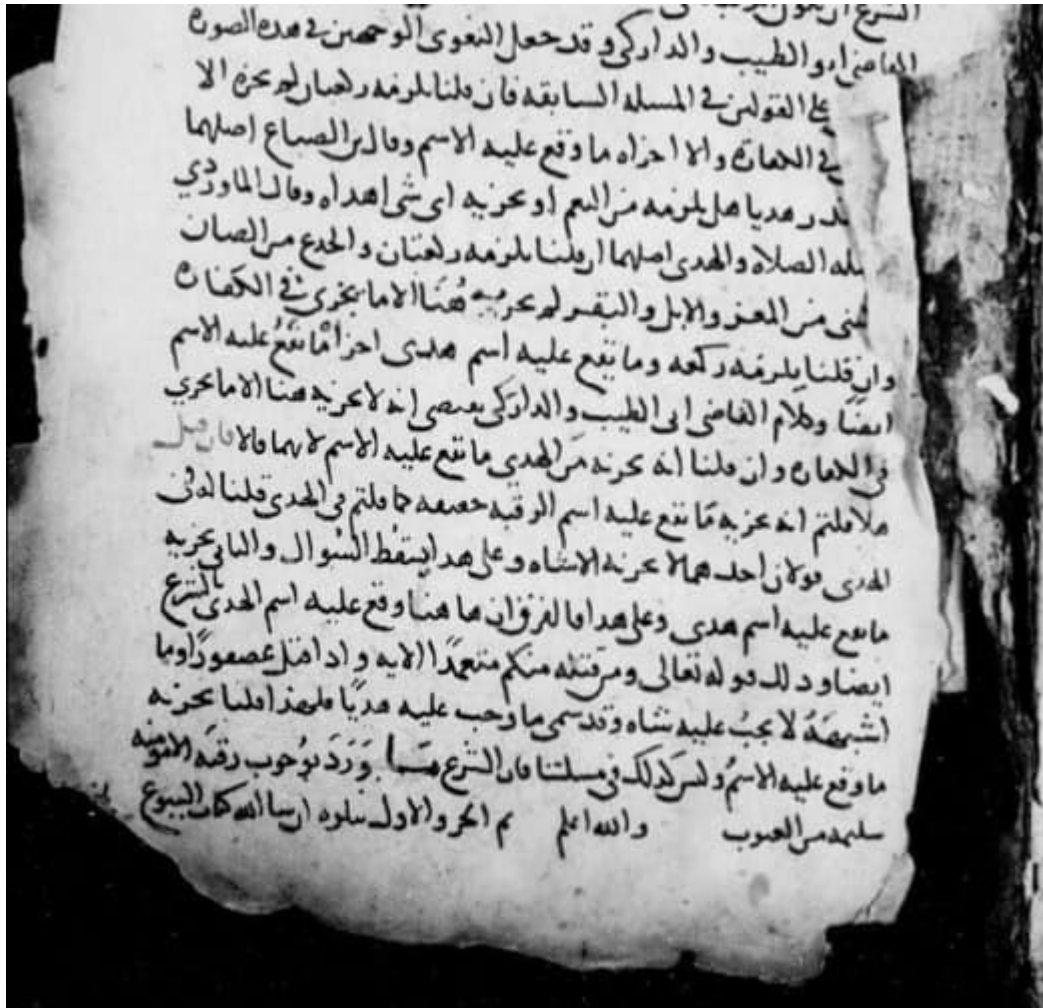 الشرع ان
القاضي ابو الطيب والداركي وقد جعل البغوي الوجهين في هذه الصورة
على القولين في المسئلة السابقة فان قلنا يلزمه ركعتان لم يجزه الا
في الكفارة والا اجزاه ما وقع عليه الاسم وقال بن الصباغ اصلهما
نذر هديا هل يلزمه من النعم او يجزيه اي شي اهداه وقال الماوردي
الصلاة والهدي اصلهما ان قلنا يلزمه ركعتان والجذع من الضان
والثني من المعز والابل والبقر لم يجزيه هنا الا ما يجزي في الكفارة
وان قلنا يلزمه ركعة وما يقع عليه اسم هدي اجزا ما يقع عليه الاسم
ايضا وكلام القاضي ابي الطيب والداركي يقتضي انه لا يجزيه هنا الا ما يجزي
في الكفارة وان قلنا انه يجزيه من الهدي ما يقع عليه الاسم لانهما قالا فان قيل
هلا قلتم انه يجزيه ما يقع عليه اسم الرقبة حقيقة كما قلتم في الهدي قلنا له في
الهدي قولان احدهما لا يجزيه الا شاه وعلى هذا يسقط السوال والثاني يجزيه
ما يقع عليه اسم هدي وعلى هذا فالفرق ان هاهنا وقع عليه اسم الهدي بالشرع
ايضا وذلك قوله تعالى ومن قتله منكم متعمدا الاية واذا قتل عصفورا وما
اشبهه لا يجب عليه شاه وقد سمى ما وجب عليه هديا فلهذا قلنا يجزيه
ما وقع عليه الاسم وليس كذلك في مسلتنا فان الشرع ورد بوجوب رقبة الا مومنه
سليمه من العيوب والله اعلم تم الجزو الاول يتلوه ان شا الله كتاب البيوع